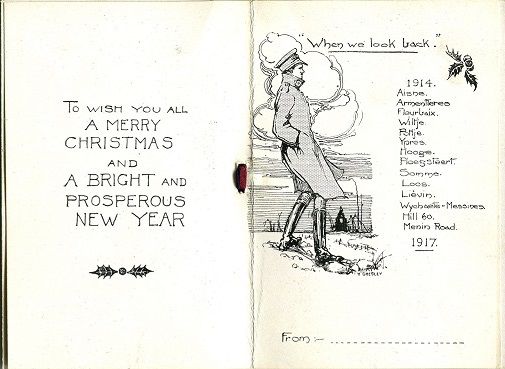 To wish you all
a merry
Christmas
and
a bright and
prosperous
New Year
"When we look back."
1914.
Aisne.
Armentieres
Fleurbaix.
Wiltje.
Potije.
Ypres.
Hooge.
Ploegsteert.
Somme.
Loos.
Liévin.
Wychaete-Messines.
Hill 60.
Menin Road.
1917.
From :-